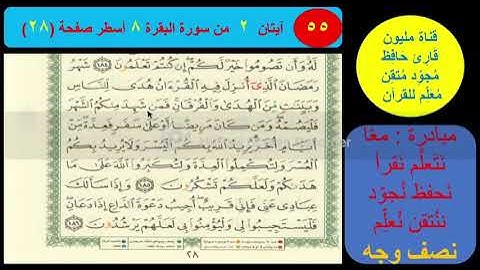 ٥٥
آيتان ٢ من سورة البقرة ٨ أسطر صفحة (٢٨)
قناة مليون
قارئ حافظ
مُجوّد مُتقن
مُعلّم للقرآن
لَّهُۥ وَأَن تَصُومُوا۟ خَيْرٌ لَّكُمْ إِن كُنتُمْ تَعْلَمُونَ ١٨٤ شَهْرُ
رَمَضَانَ ٱلَّذِىٓ أُنزِلَ فِيهِ ٱلْقُرْءَانُ هُدًى لِّلنَّاسِ
وَبَيِّنَٰتٍ مِّنَ ٱلْهُدَىٰ وَٱلْفُرْقَانِ فَمَن شَهِدَ مِنكُمُ ٱلشَّهْرَ
فَلْيَصُمْهُ وَمَن كَانَ مَرِيضًا أَوْ عَلَىٰ سَفَرٍ فَعِدَّةٌ مِّنْ
أَيَّامٍ أُخَرَ يُرِيدُ ٱللَّهُ بِكُمُ ٱلْيُسْرَ وَلَا يُرِيدُ بِكُمُ
ٱلْعُسْرَ وَلِتُكْمِلُوا۟ ٱلْعِدَّةَ وَلِتُكَبِّرُوا۟ ٱللَّهَ عَلَىٰ مَا
هَدَىٰكُمْ وَلَعَلَّكُمْ تَشْكُرُونَ ١٨٥ وَإِذَا سَأَلَكَ
عِبَادِى عَنِّى فَإِنِّى قَرِيبٌ أُجِيبُ دَعْوَةَ ٱلدَّاعِ إِذَا دَعَانِ
فَلْيَسْتَجِيبُوا۟ لِى وَلْيُؤْمِنُوا۟ بِى لَعَلَّهُمْ يَرْشُدُونَ ١٨٦
٢٨
مبادرة : معًا
نَتَعلّم نَقرأ
نَحفظ نُجوّد
نَتُقن نُعلّم
نصف وجه